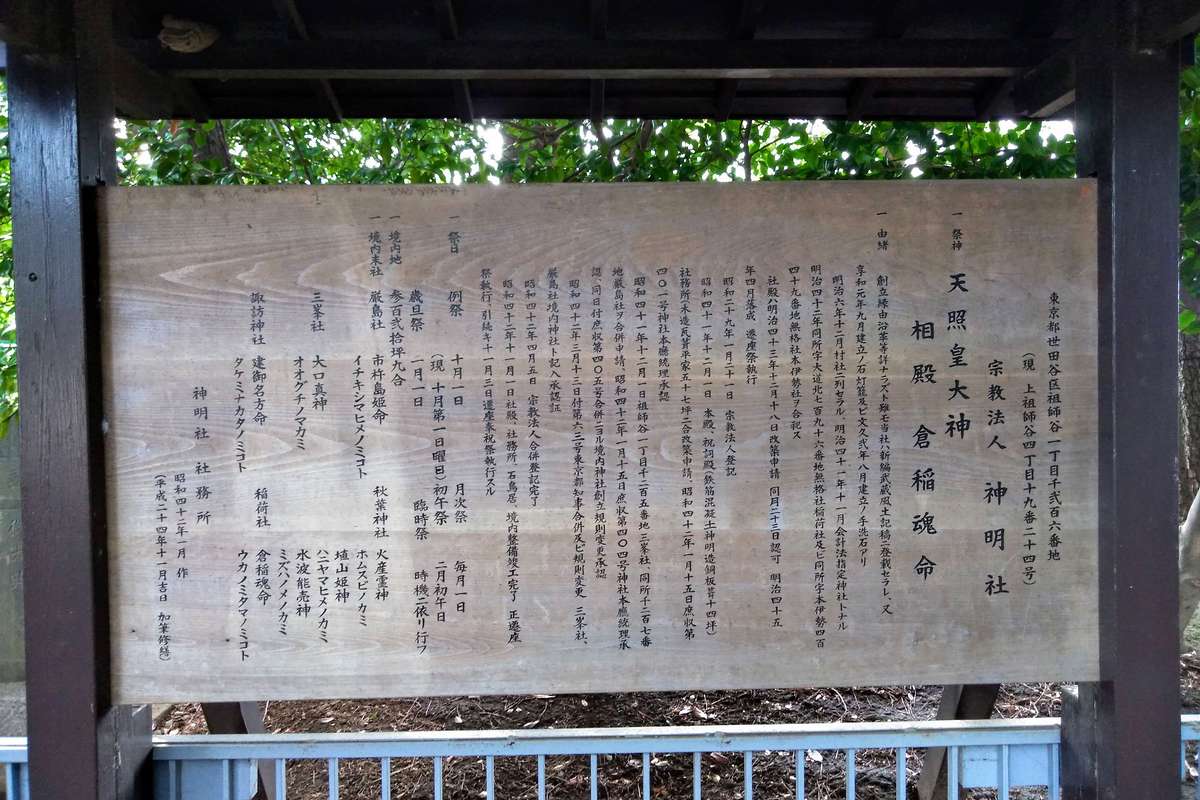 東京都世田谷区祖師谷一丁目千弐百六番地
(現 上祖師谷四丁目十九番二十四号)
宗教法人 神明社
一祭神 天照皇大神
相殿 倉稲魂命
一由緒 創立縁由沿革等詳ナラズト雖モ当社ハ新編武蔵風土記稿ニ登載セラレ、又
享和元年九月建立ノ石灯籠及ビ文久弐年八月建立ノ手洗石アリ
明治六年十二月村社ニ列セラル、明治四十一年十一月会計法指定神社トナル
明治四十二年同所字大道北七百九十六番地無格社稲荷社及ビ同所字本伊勢四百
四十九番地無格社本伊勢社ヲ合祀ス
社殿ハ明治四十三年十二月十八日改築申請 同月二十三日認可 明治四十五
年四月落成 遷座祭執行
昭和二十九年一月二十一日 宗教法人登記
昭和四十一年十二月一日 本殿、祝詞殿(鉄筋混凝土神明造銅板葺十四坪)
社務所(木造瓦葺平家五十七坪二合改築申請、昭和四十二年一月十五日庶収第
四〇一号神社本廳統理承認
昭和四十一年十二月一日祖師谷一丁目千二百五番地 三峯社、同所千二百七番
地厳島社ヲ合併申請、昭和四十二年一月十五日庶収第四〇四号神社本廳統理承
認、同日付庶収第四〇五号合併ニヨル境内神社創立規則変更承認
昭和四十二年三月十三日付第六三号東京都知事合併及ビ規則変更 三峯社、
厳島社境内神社ト記入承認証
昭和四十二年四月五日 宗教法人合併登記完了
昭和四十二年十一月一日社殿、社務所、石鳥居、境内整備竣工完了 正遷座
祭執行、引続キ十一月三日遷座奉祝祭執行スル
一祭日 例祭 十月一日 月次祭 毎月一日
(現 十月第一日曜日)初午祭 二月初午日
歳旦祭 一月一日 臨時祭 時機ニ依リ行フ
一境内地 参百弐拾坪九合
一境内末社 厳島社 市杵島姫命 秋葉神社 火産霊神
イチキシマヒメノミコト ホムスビノカミ
埴山姫神
三峯社 大口真神 ハニヤマヒメノカミ
オオグチノマカミ 水波能売神
ミズハノメノカミ
諏訪神社 建御名方命 稲荷社 倉稲魂命
タケミナカタノミコト ウカノミタマノミコト
神明社 社務所
昭和四十二年一月 作
(平成二十四年十一月吉日 加筆修繕)